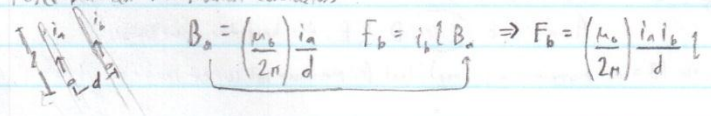 l iₐ i_b d B₀ = (μ₀/2π) iₐ/d F_b = i_b l Bₐ ⇒ F_b = (μ₀/2π) iₐ i_b/d l